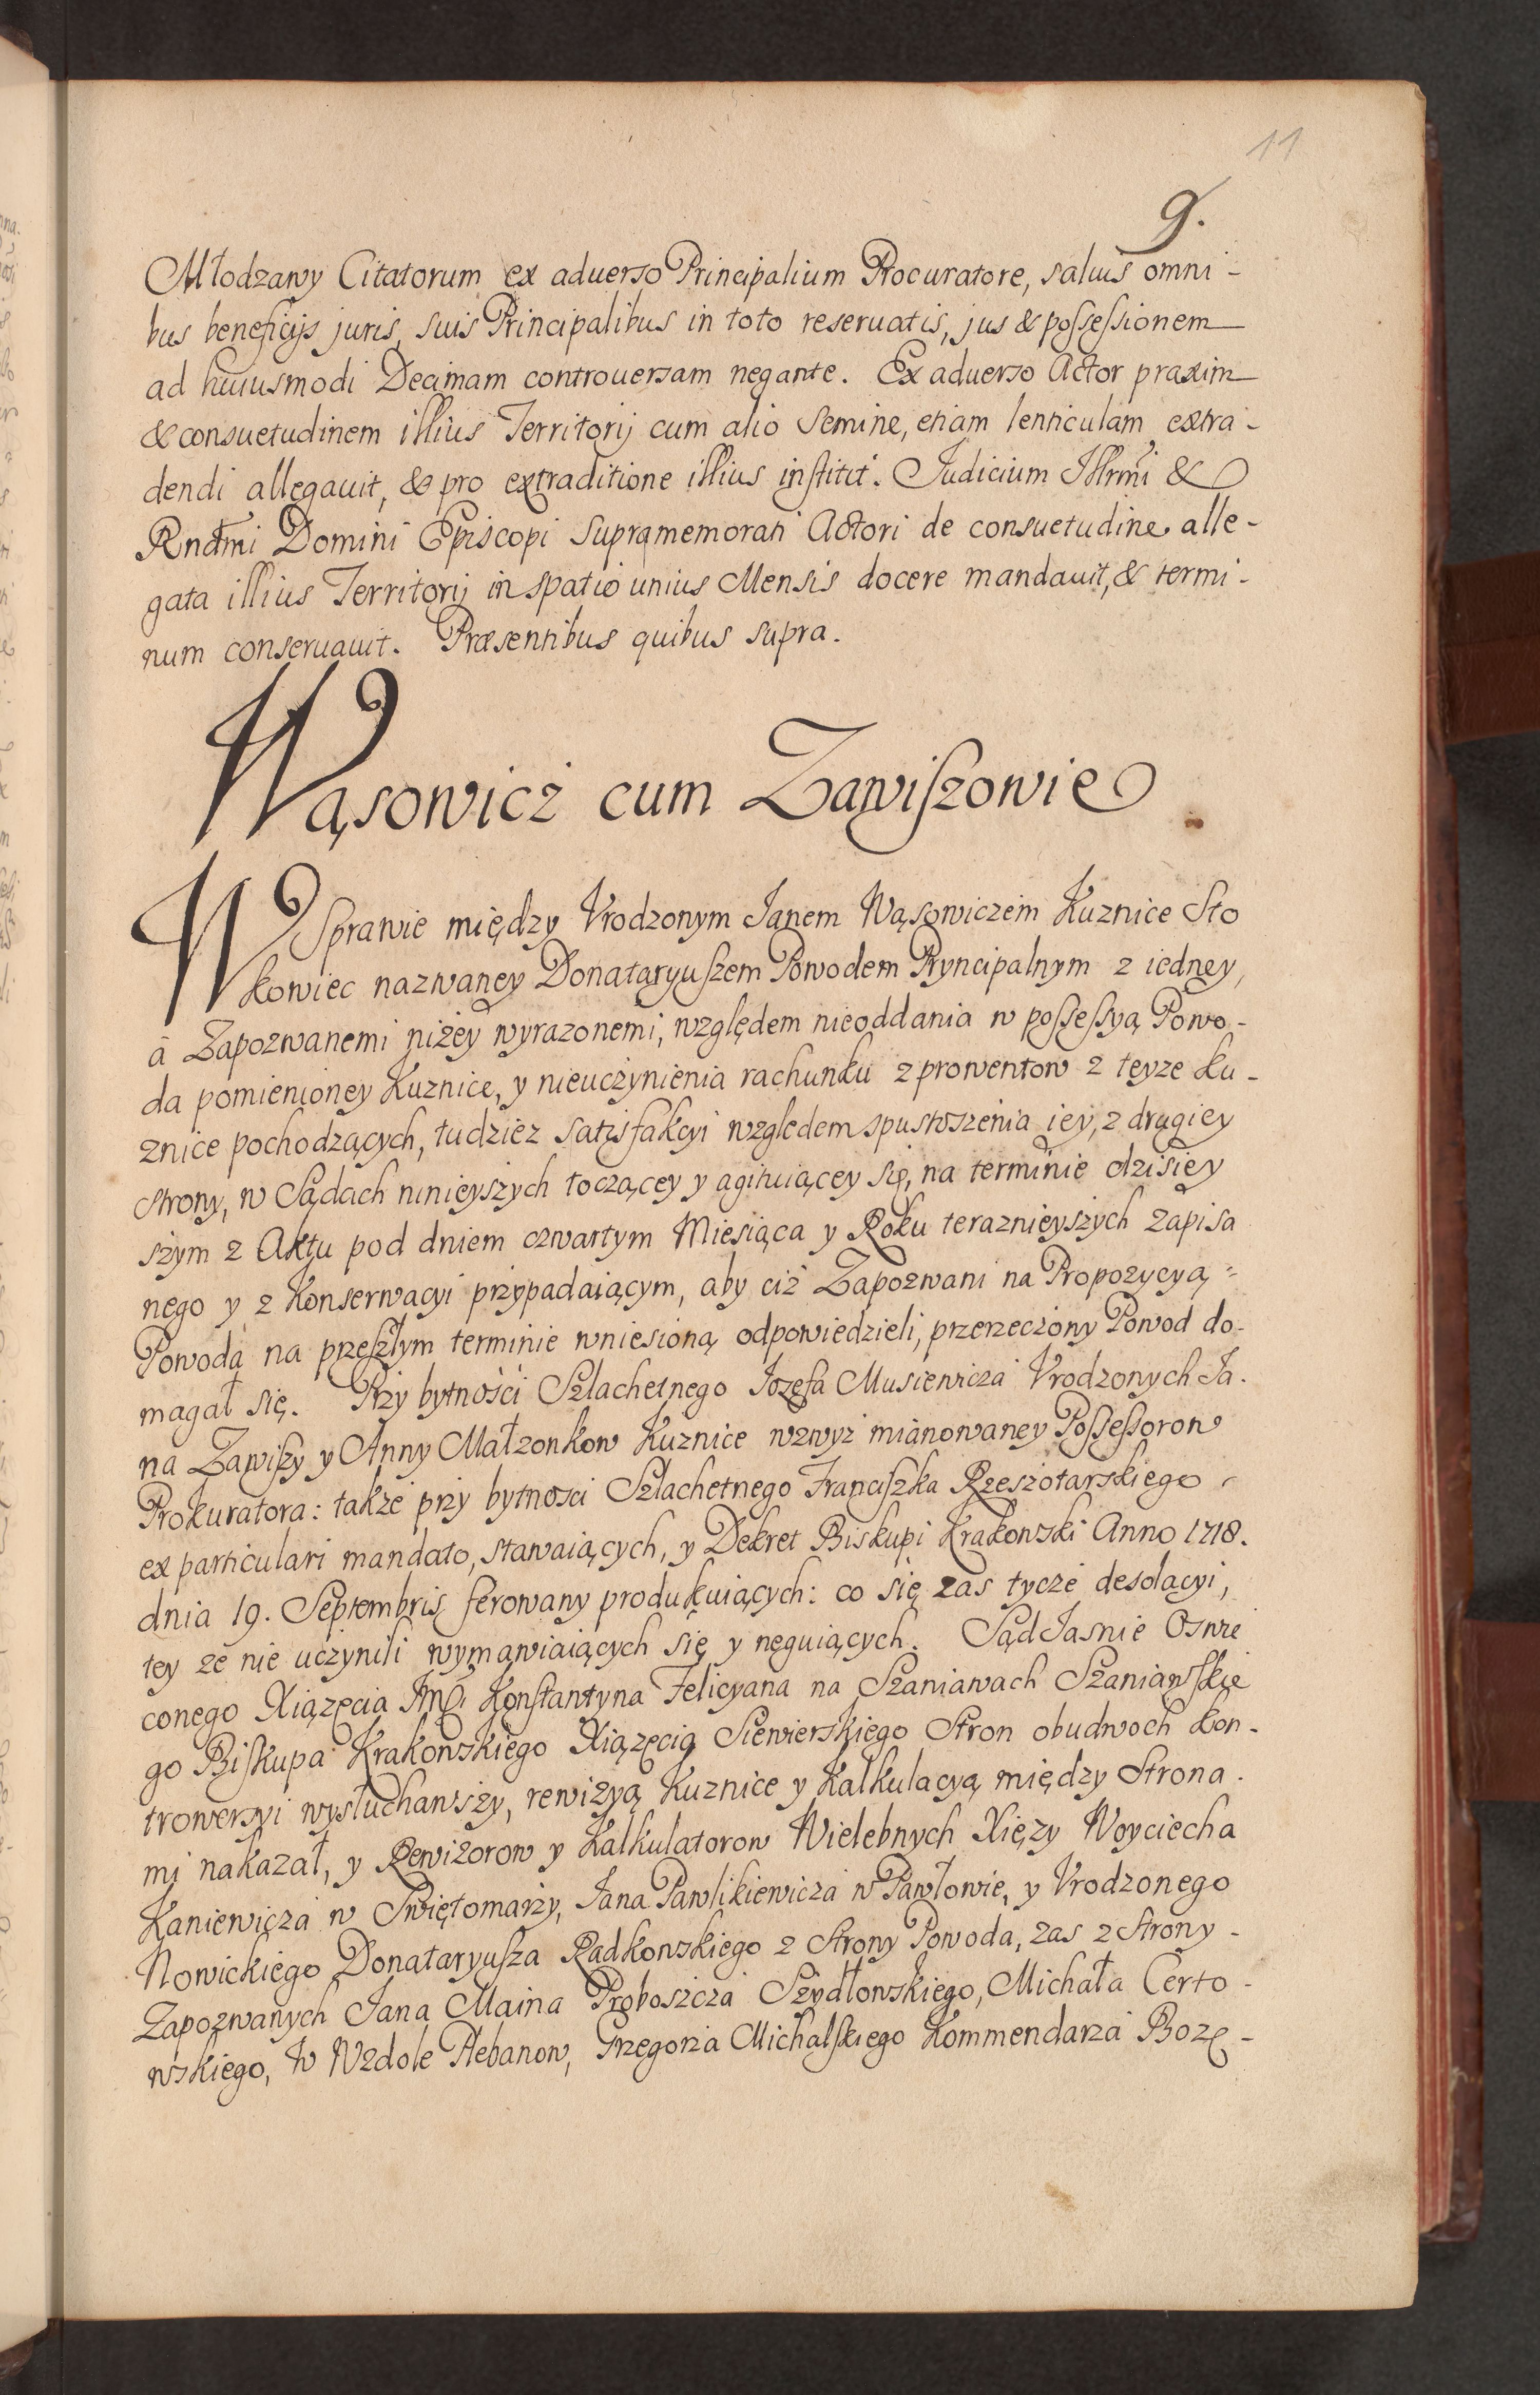 11
9.
Młodzawy Citatorum ex aduerso Principalium Procuratore, saluis omni-
bus beneficijs juris, suis Principalibus in toto reseruatis, jus & possessionem
ad huiusmodi Decimam controuersam negante. Ex aduerso Actor praxim
& consuetudinem illius Territorij cum alio semine, etiam lenticulam extra-
dendi allegauit, & pro extraditione illius institit. Judicium Illrmi &
Rndmi Domini Episcopi supramemorati Actori de consuetudine alle-
gata illius Territorij in spatio unius Mensis docere mandauit, & termi-
num conseruauit. Præsentibus quibus supra.
Wąsowicz cum Zawiszowie
W Sprawie między Vrodzonym Janem Wąsowiczem Kuznice Sto
kowiec nazwaney Donataryuszem Powodem Pryncipalnym z iedney,
à Zapozwanemi niżey wyrazonemi, względem nieoddania w possessyą Powo-
da pomienioney Kuznice, y nieuczynienia rachunku z prowentow z teyze ku-
znice pochodzących, tudziez satisfakcyi względem spustoszenia iey, z drugiey
strony, w Sądach ninieyszych toczącey y agituiącey się, na terminie dzisiey
szym z Aktu pod dniem czwartym Miesiąca y Roku teraznieyszych zapisa
nego y z Konserwacyi przypadaiącym, aby ciż Zapozwani na Propozycyą
Powoda na przeszłym terminie wniesioną odpowiedzieli, przerzeczony Powod do-
magał się. Przy bytności Szlachetnego Jozefa Musiewicza Vrodzonych Ja-
na Zawiszy y Anny Małzonkow Kuznice wzwyz mianowaney Possessorow
Prokuratora: także przy bytnosci Szlachetnego Franciszka Rzeszotarskiego
ex particulari mandato, stawaiących, y Dekret Biskupi Krakowski Anno 1718.
dnia 19. Septembris ferowany produkuiących: co się zas tycze desolacyi,
tey ze nie uczynili wymawiaiących się y neguiących. Sąd Jasnie Oswie
conego Xiązęcia Jmći Konstantyna Felicyana na Szaniawach Szaniawskie
go Biskupa Krakowskiego Xiązęcia Siewierskiego Stron obudwoch kon-
trowersyi wysłuchawszy, rewizyą Kuznice y Kalkulacyą między Strona-
mi nakazał, y Rewizorow y Kalkulatorow Wielebnych Xięzy Woyciecha
Kaniewicza w Swiętomarzy, Jana Pawlikiewicza w Pawłowie, y Vrodzonego
Nowickiego Donataryusza Radkowskiego z Strony Powoda, zas z Strony
Zapozwanych Jana Maina Proboszcza Szydłowskiego, Michała Certo-
wskiego, w Wzdole Plebanow, Grzegorza Michalskiego Kommendarza Bozę-